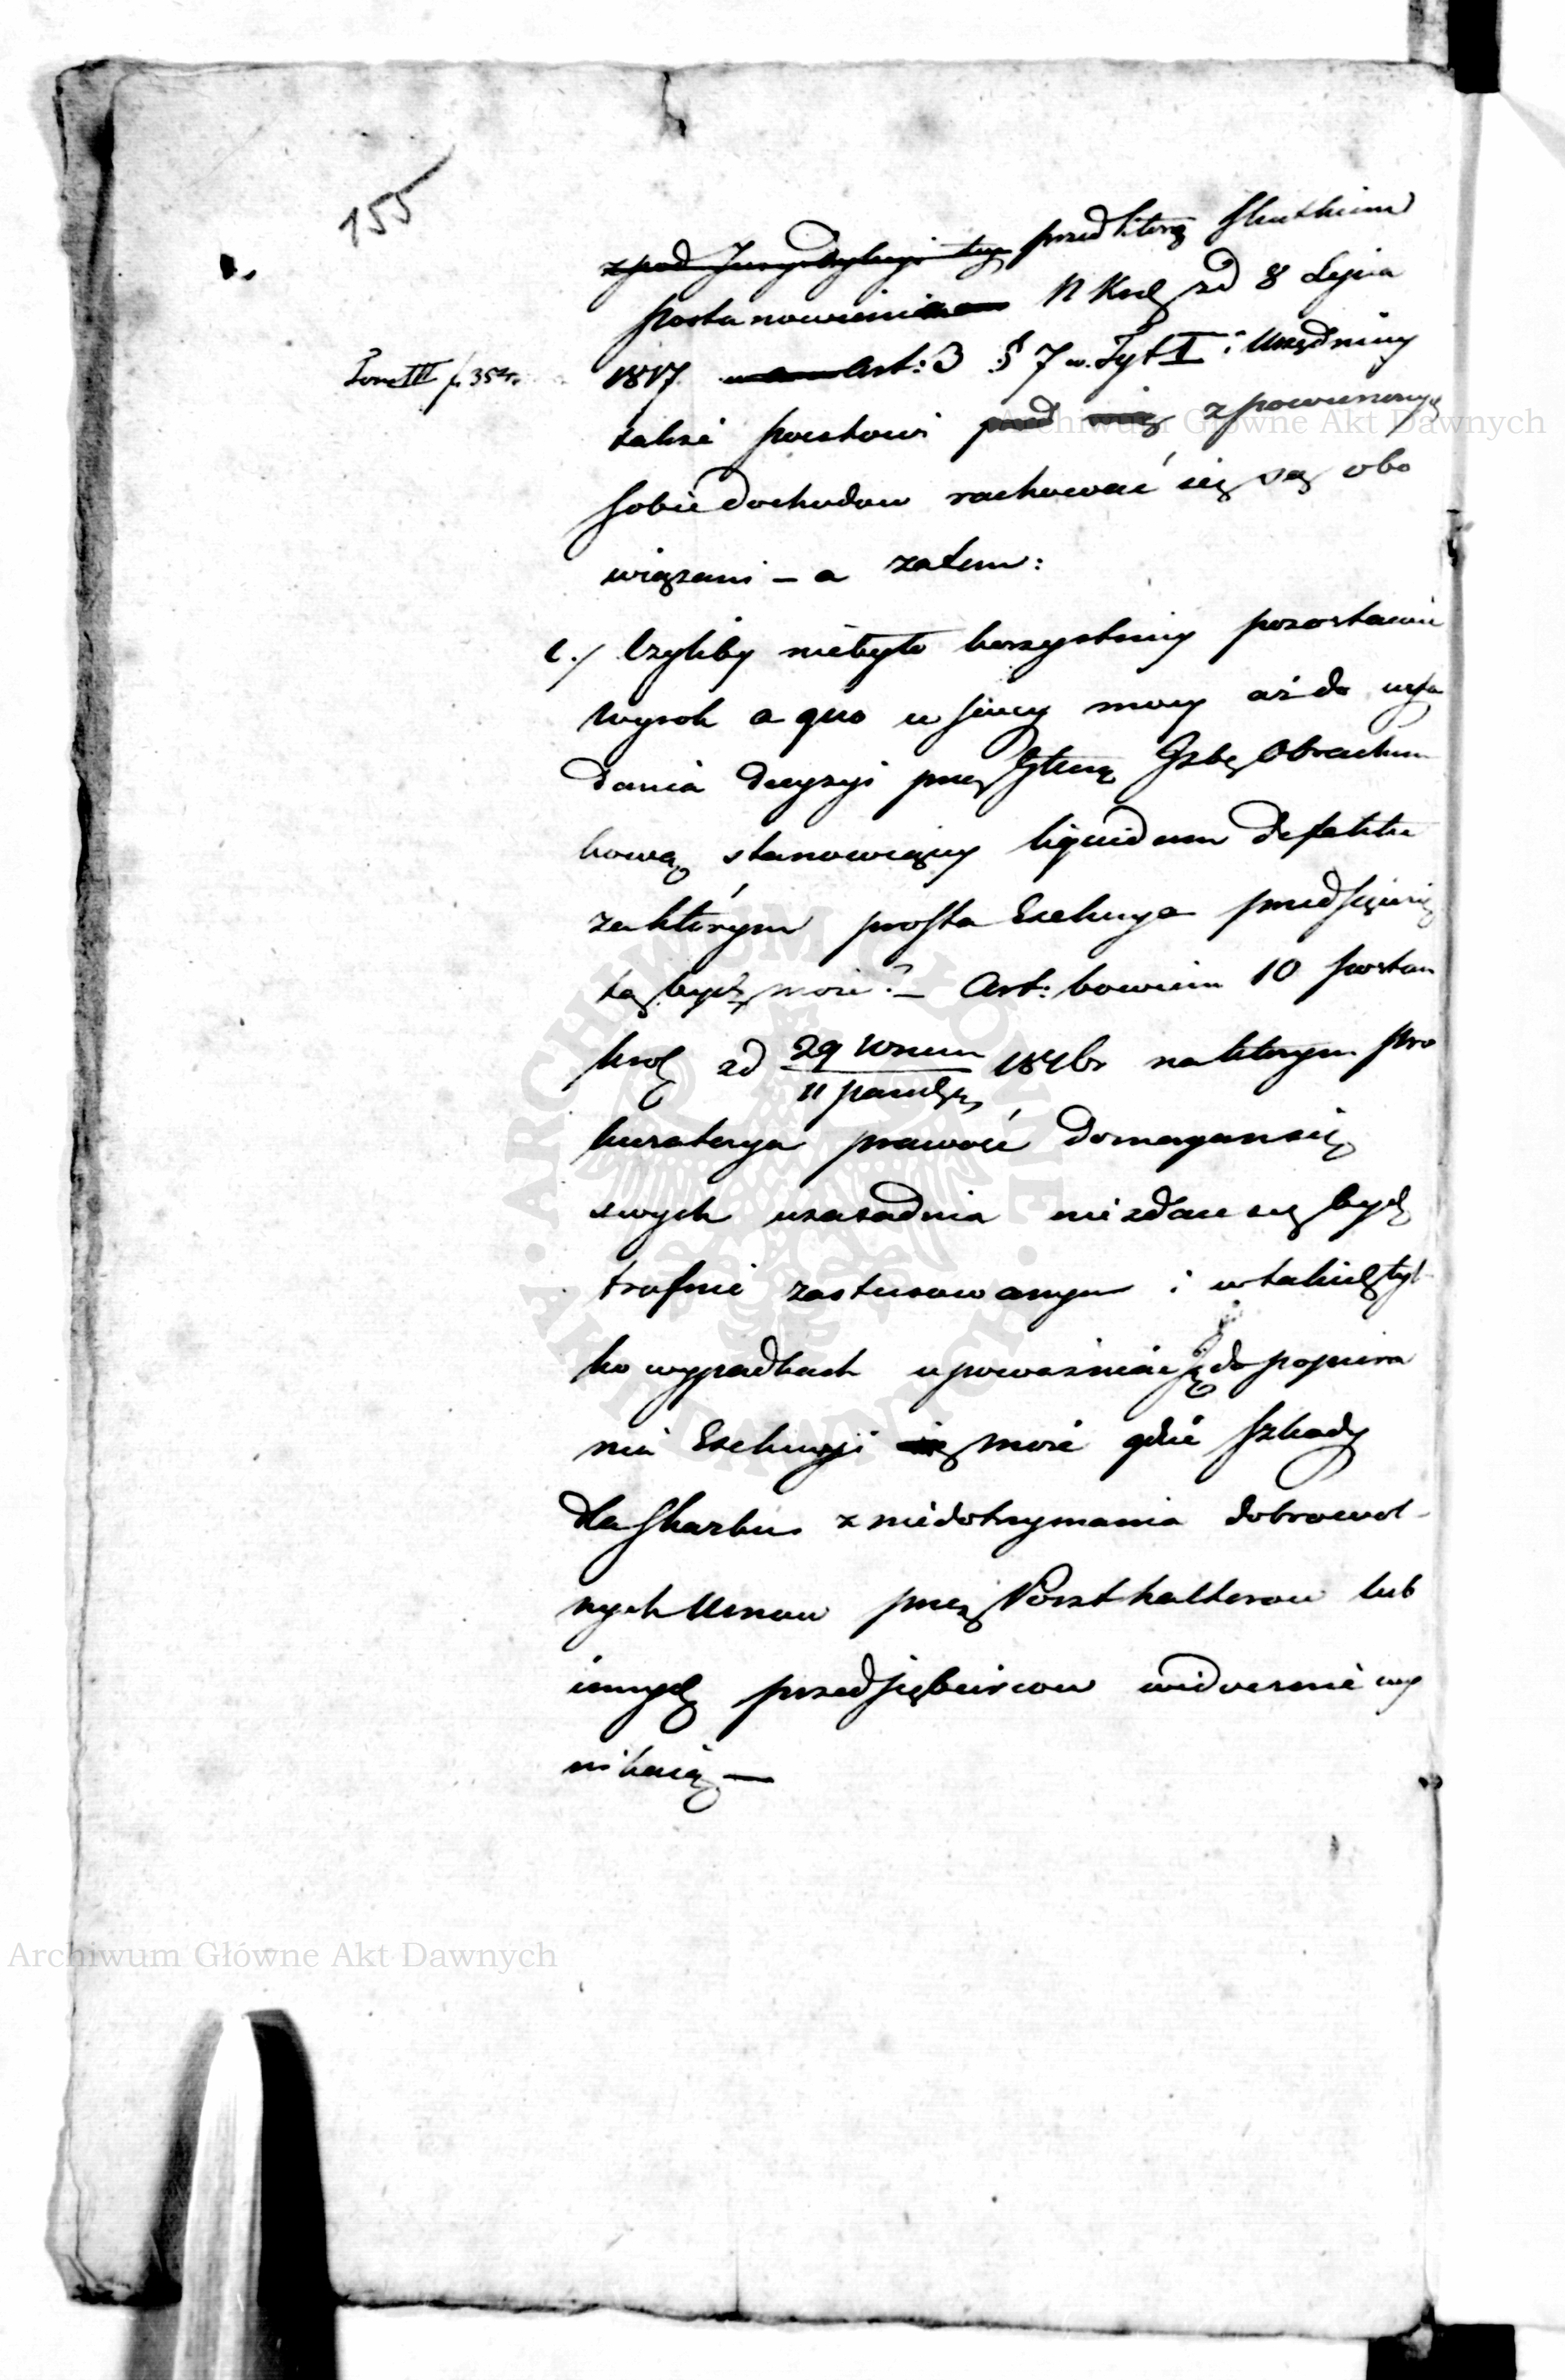 155
z pod Jurysdykcyi tey przed którą skutkiem
postanowienia N Król zd 8 Lipca
Tom III f. 354.
1817 Art: 3 § 7 w. Tyt I i Urzędnicy
także pocztowi pod z powierzonych
sobie dochodow rachować się są obo
wiązani – a zatem:
c./ Czyliby niebyło korzystniey pozostawić
wyrok a quo w swey mocy aż do wyda
dania decyzyi przez Główną Izbę Obrachun
kową stanowiący liquidum defektu
za którym prosta Exekucya przedsięwzię
tą bydź może? – Art: bowiem 10 postan
król zd 29 Wrześn / 11 Paźdz 1816r na którym pro
kuratorya prawość domagań się
swych uzasadnia nie zdaie się bydź
trafnie zastosowanym i w takich tyl
ko wypadkach upoważniać ją do popiera
nia Exekucyi może gdzie szkody
dla Skarbu z niedotrzymania dobrowol-
nych Umow przez Poczthalterow lub
innych przedsiębiercow widocznie wy
nikaią —
Archiwum Główne Akt Dawnych
Archiwum Główne Akt Dawnych
ARCHIWUM GŁÓWNE · AKT DAWNYCH ·